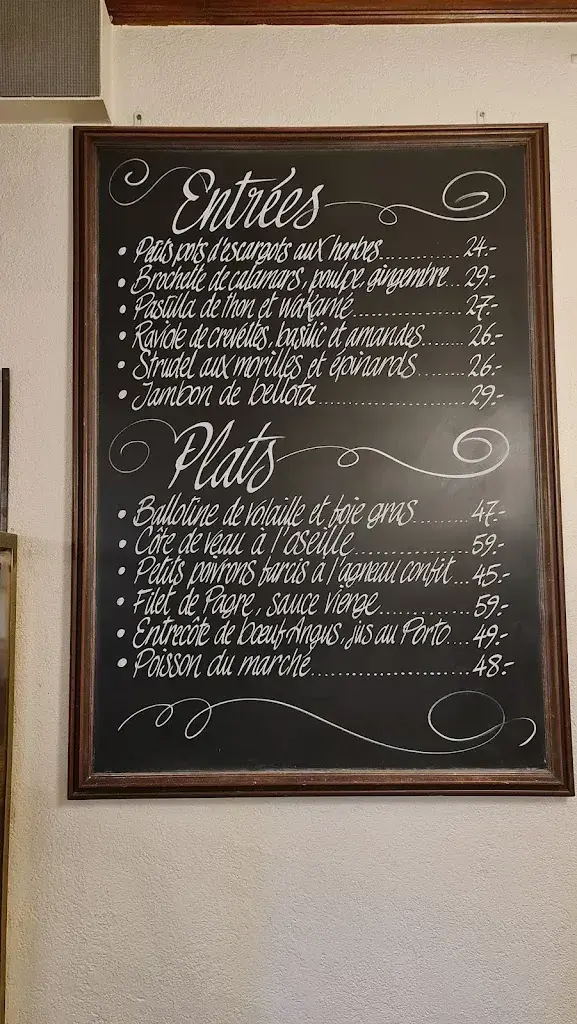 Entrées
• Petits pots d'escargots aux herbes..........24.-
• Brochette de calamars, poulpe, gingembre...29.-
• Pastilla de thon et wakamé..............27.-
• Raviole de crevettes, basilic et amandes.......26.-
• Strudel aux morilles et épinards.........26.-
• Jambon de bellota.....................29.-
Plats
• Ballotine de volaille et foie gras.........47.-
• Côte de veau à l'oseille.................59.-
• Petits poivrons farcis à l'agneau confit...45.-
• Filet de Pagre, sauce vierge.............59.-
• Entrecôte de bœuf Angus, jus au Porto....49.-
• Poisson du marché.......................48.-